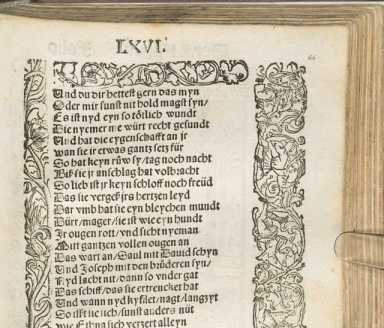 LXVI.
66
Und du dir hettest gern das myn
Oder mir sunst nit hold magst syn/
Es ist nyd eyn so tötlich wundt
Die nyemer me würt recht gesundt
Und hat die eygenschafft an jr
wan sie ir etwas gantz setz für
So hat keyn rüw sy/tag noch nacht
Biß sie jr anschlag hat volbracht
So lieb ist jr keyn schloff noch freüd
Das sie vergeß jrs hertzen leyd
Dar vmb hat sie eyn bleychen mundt
Dürr/mager/sie ist wie eyn hundt
Ir ougen rott/vnd sicht nyeman
Mitt gantzen vollen ougen an
Das wart an/Saul mit David schyn
Und Joseph mit den brüderen syn/
Nyd lacht nit/dann so vnder gat
Das schiff/das sie ertrencket hat
Und wann nyd kyflet/nagt/lang zyt
So ißt sie sich/sunst anders nüt
wie Ethna sich verzert alleyn